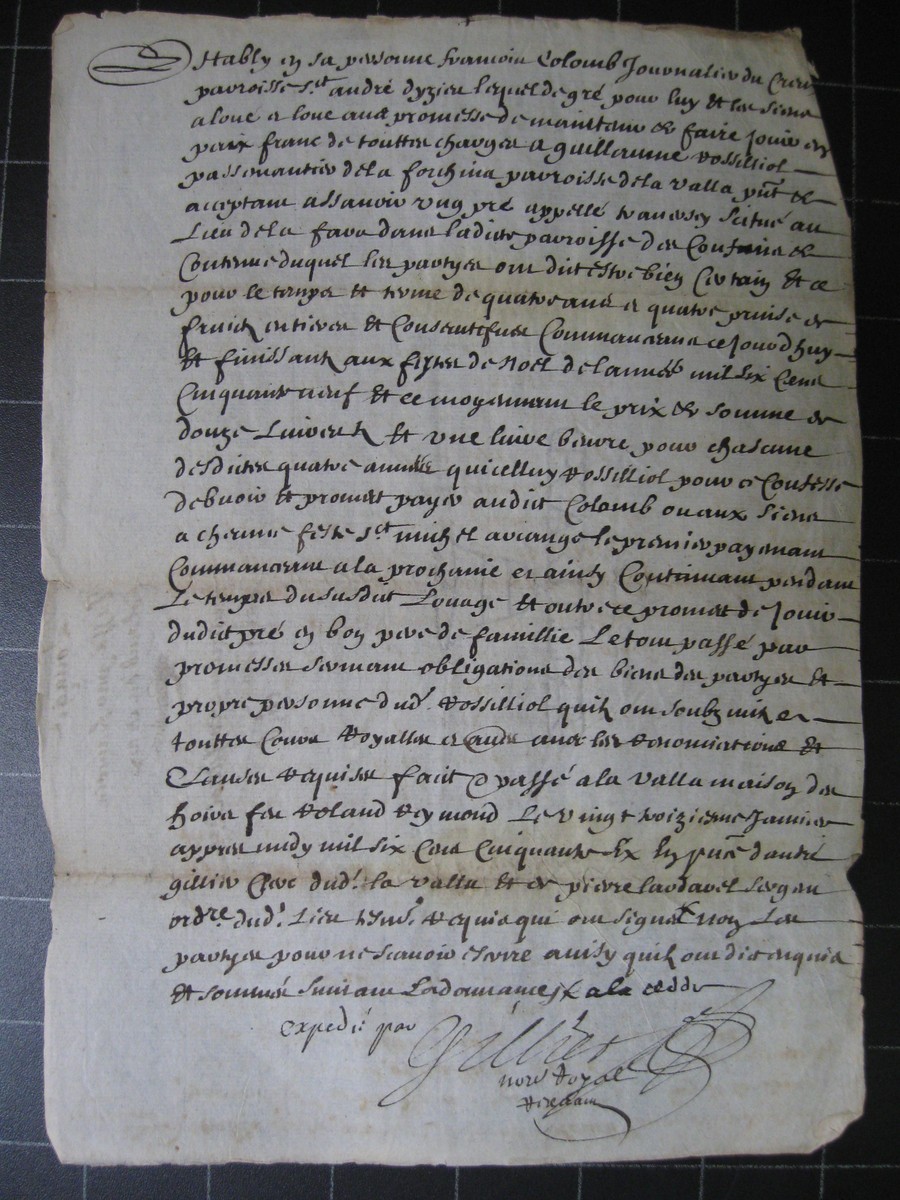 Estably en sa personne francois Colomb Journalier du Creux
parroisse st andré dyzieu lequel de gré pour luy et les siens
a loué et loue avec promesse de maintenir et faire jouir en
paix franc de touttes charges a guillaume Rossilliol
passemantier de la forchina parroisse de la valla pnt et
acceptant assavoir ung pré appellé traversey situé au
Lieu de la fara dans ladicte parroisse des Confins et
Contenue duquel les partyes ont dict estre bien Certain et ce
pour le temps et terme de quatre ans et quatre prinse de
fruict entieres et Consecutifves Commancerons ce jourdhuy
et finissant aux festes de Noel de lannée mil six Cens
Cinquante neuf et ce moyennant le prix et somme de
douze Livres tz et une livre beurre pour chascune
desdictes quatre années qui celluy Rossilliol pour ce Confesse
debvoir et promet payer audict Colomb ou aux siens
a chesune feste st michel arcange le premier payemant
Commancerat a la prochaine et ainsy Continuant pendant
Le temps du susdict Louage et outre ce promet de jouir
dudict pré en bon pere de famillie Le tout passé par
promesses sermant obligations des biens des partyes et
propre personne dud. Rossilliol quilz ont soubzmitz a
touttes Cours Royalles et audes avec les Renonciations et
Clauses Requises fait & passé a la valla maison des
hoirs feu Roland Reymond Le vingt troizieme Janvier
appres midy mil six Cens Cinquante six En pnce dandré
gillier Clerc dud. la valla et de pierre lardavel sergent
ordre. dud. Lieu tesms. Requis qui ont signé non Les
partyes pour ne scavoir escrire ainsy quilz ont dict enquis
et sommés suivant Lordonnance a la cedde
expedié par
Gillier
nore Royal